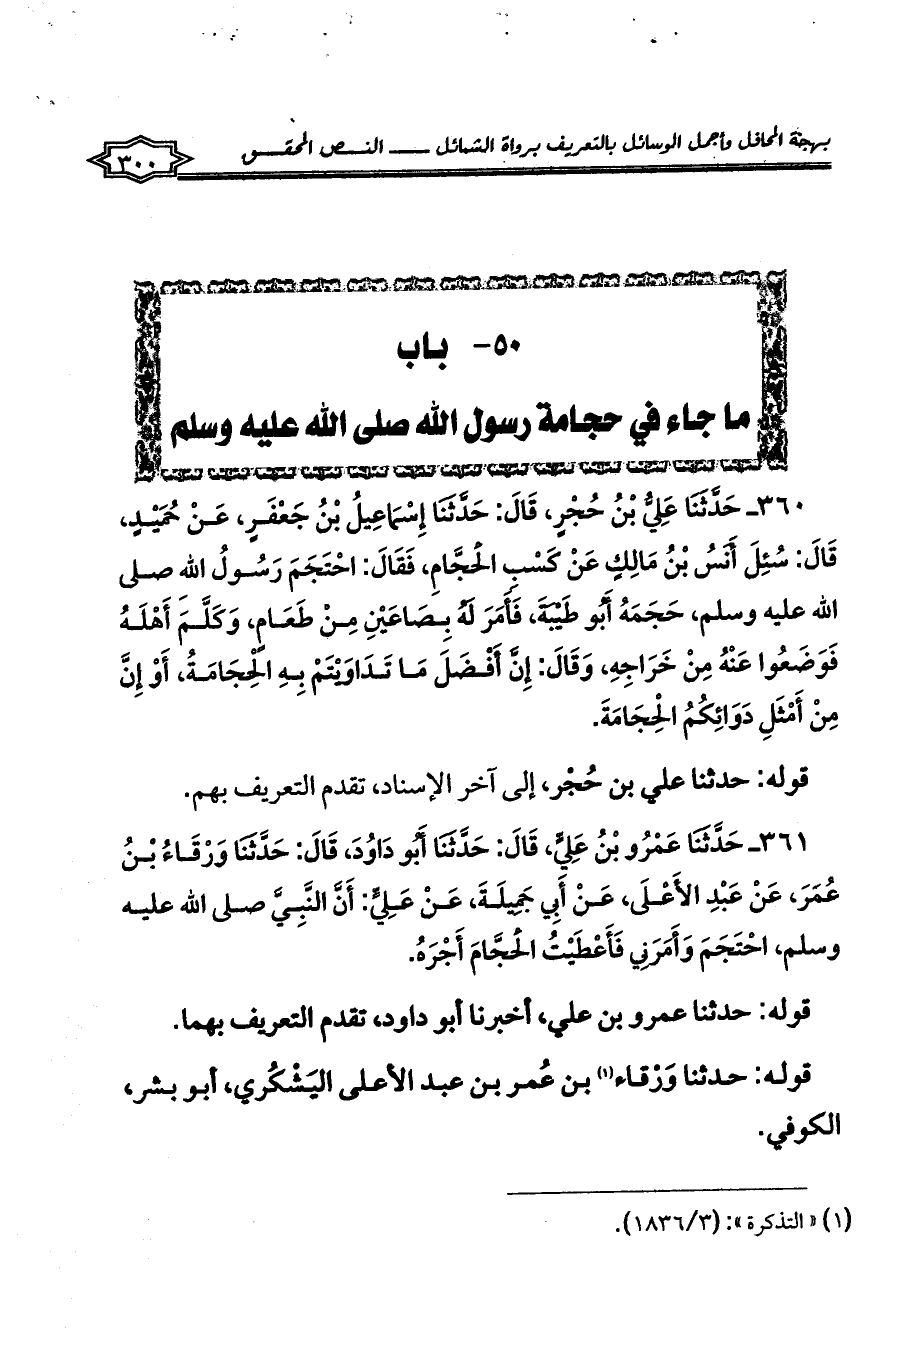 بهجة المحافل وأجمل الوسائل بالتعريف برواة الشمائل ــــ النـــص المحقـــق
٣٠٠
٥٠- باب
ما جاء في حجامة رسول الله صلى الله عليه وسلم
٣٦٠ـ حَدَّثَنَا عَلِيُّ بْنُ حُجْرٍ، قَالَ: حَدَّثَنَا إِسْمَاعِيلُ بْنُ جَعْفَرٍ، عَنْ حُمَيْدٍ،
قَالَ: سُئِلَ أَنَسُ بْنُ مَالِكٍ عَنْ كَسْبِ الْحَجَّامِ، فَقَالَ: احْتَجَمَ رَسُولُ الله صلى
الله عليه وسلم، حَجَمَهُ أَبُو طَيْبَةَ، فَأَمَرَ لَهُ بِصَاعَيْنِ مِنْ طَعَامٍ، وَكَلَّمَ أَهْلَهُ
فَوَضَعُوا عَنْهُ مِنْ خَرَاجِهِ، وَقَالَ: إِنَّ أَفْضَلَ مَا تَدَاوَيْتُمْ بِهِ الْحِجَامَةُ، أَوْ إِنَّ
مِنْ أَمْثَلِ دَوَائِكُمُ الْحِجَامَةَ.
قوله: حدثنا علي بن حُجْر، إلى آخر الإسناد، تقدم التعريف بهم.
٣٦١ـ حَدَّثَنَا عَمْرُو بْنُ عَلِيٍّ، قَالَ: حَدَّثَنَا أَبُو دَاوُدَ، قَالَ: حَدَّثَنَا وَرْقَاءُ بْنُ
عُمَرَ، عَنْ عَبْدِ الأَعْلَى، عَنْ أَبِي جَمِيلَةَ، عَنْ عَلِيٍّ: أَنَّ النَّبِيَّ صلى الله عليه
وسلم، احْتَجَمَ وَأَمَرَنِي فَأَعْطَيْتُ الْحَجَّامَ أَجْرَهُ.
قوله: حدثنا عمرو بن علي، أخبرنا أبو داود، تقدم التعريف بهما.
قوله: حدثنا وَرْقاء(١) بن عُمر بن عبد الأعلى اليَشْكُري، أبو بشر،
الكوفي.
(١) «التذكرة»: (١٨٣٦/٣).